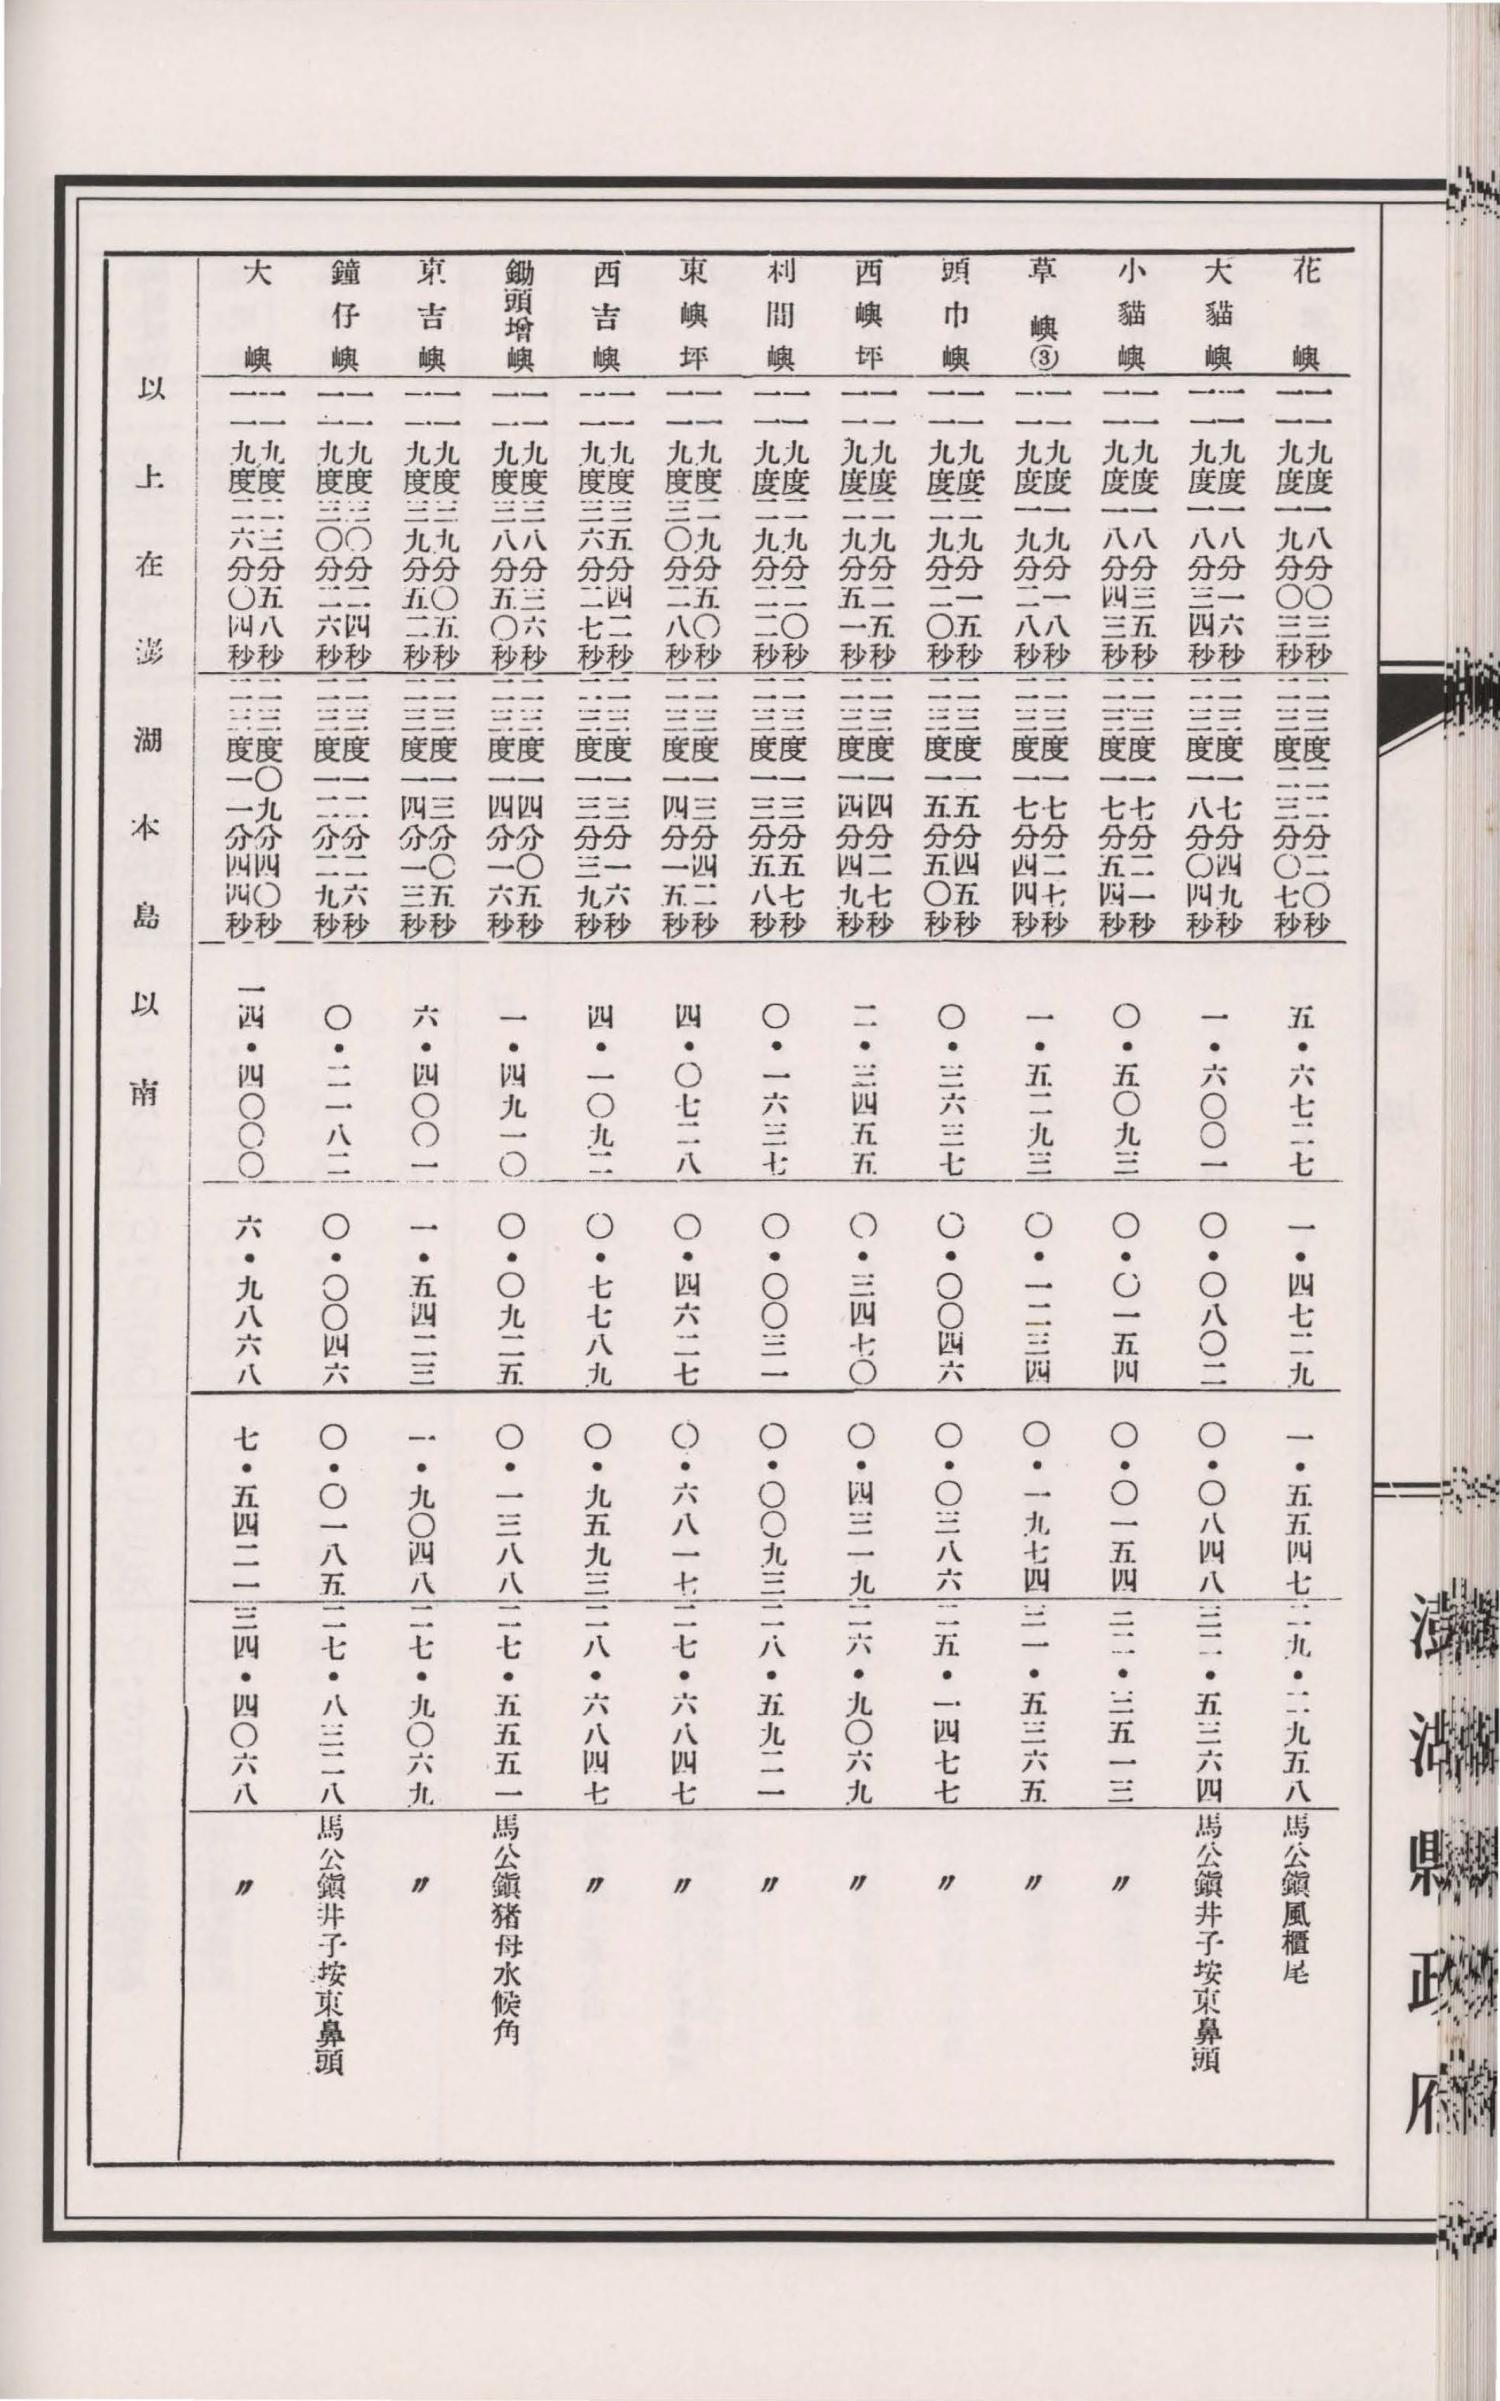 澎湖縣政府
花嶼
一一九度一八分〇三秒
一一九度一九分〇三秒
二三度二二分二〇秒
二三度二三分〇七秒
五・六七二七
一・四七二九
一・五五四七
二九・二九五八
馬公鎭風櫃尾
大貓嶼
一一九度一八分一六秒
一一九度一八分三四秒
二三度一七分四九秒
二三度一八分〇四秒
一・六〇〇一
〇・〇八〇二
〇・〇八四八
三二・五三六四
馬公鎭井子垵東鼻頭
小貓嶼
一一九度一八分三五秒
一一九度一八分四三秒
二三度一七分二一秒
二三度一七分五四秒
〇・五〇九三
〇・〇一五四
〇・〇一五四
三二・三五一三
〃
草嶼③
一一九度一九分一八秒
一一九度一九分二八秒
二三度一七分二七秒
二三度一七分四四秒
一・五二九三
〇・一二三四
〇・一九七四
三一・五三六五
〃
頭巾嶼
一一九度二九分一五秒
一一九度二九分二〇秒
二三度一五分四五秒
二三度一五分五〇秒
〇・三六三七
〇・〇〇四六
〇・〇三八六
二五・一四七七
〃
西嶼坪
一一九度二九分二五秒
一一九度二九分五一秒
二三度一四分二七秒
二三度一四分四九秒
二・三四五五
〇・三四七〇
〇・四三一九
二六・九〇六九
〃
利間嶼
一一九度二九分二〇秒
一一九度二九分二二秒
二三度一三分五七秒
二三度一三分五八秒
〇・一六三七
〇・〇〇三一
〇・〇〇九三
二八・五九二一
〃
東嶼坪
一一九度二九分五〇秒
一一九度三〇分二八秒
二三度一三分四二秒
二三度一四分一五秒
四・〇七二八
〇・四六二七
〇・六八一七
二七・六八四七
〃
西吉嶼
一一九度三五分四二秒
一一九度三六分二七秒
二三度一三分一六秒
二三度一三分三九秒
四・一〇九二
〇・七七八九
〇・九五九三
二八・六八四七
〃
鋤頭增嶼
一一九度三八分三六秒
一一九度三八分五〇秒
二三度一四分〇五秒
二三度一四分一六秒
一・四九一〇
〇・〇九二五
〇・一三八八
二七・五五五一
馬公鎭猪母水候角
東吉嶼
一一九度三九分〇五秒
一一九度三九分五二秒
二三度一三分〇五秒
二三度一四分一三秒
六・四〇〇一
一・五四二三
一・九〇四八
二七・九〇六九
〃
鐘仔嶼
一一九度三〇分二四秒
一一九度三〇分二六秒
二三度一二分二六秒
二三度一二分二九秒
〇・二一八二
〇・〇〇四六
〇・〇一八五
二七・八三二八
馬公鎭井子垵東鼻頭
大嶼
一一九度二三分五八秒
一一九度二六分〇四秒
二三度〇九分四〇秒
二三度一一分四四秒
一四・四〇〇〇
六・九八六八
七・五四二一
三四・四〇六八
〃
以上在澎湖本島以南